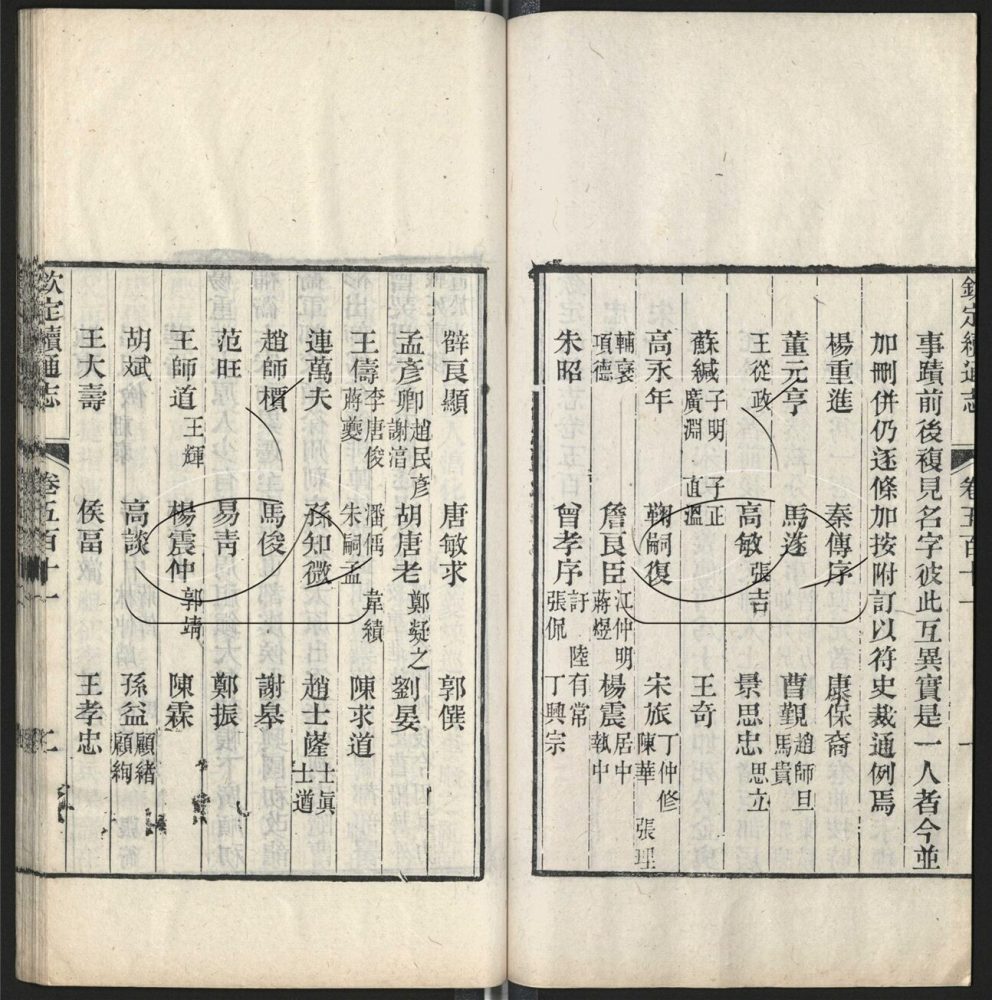 欽定續通志 卷五百十一 一
事蹟前後複見名字彼此互異實是一人者今並
加刪併仍逐條加按附訂以符史裁通例焉
楊重進 秦傳序 康保裔
董元亨 馬遂 曹覲 趙師旦 馬貴
王從政 高敏 張吉 景思忠 思立
蘇緘 子明 子正 廣淵 直溫 王奇
高永年 鞠嗣復 宋旅 丁仲修 陳華 張理
輔褒 項德 詹良臣 江仲明 蔣煜 楊震 居中 執中
朱昭 曾孝序 許 陸有常 張侃 丁興宗
薛良顯 唐敏求 郭僎
孟彥卿 趙民彥 謝淯 胡唐老 鄭凝之 劉晏
王儔 李唐俊 蔣夔 潘偁 朱嗣孟 韋績 陳求道
連萬夫 孫知微 趙士隆 士真 士道
趙師檟 馬俊 謝皋
范旺 易青 鄭振
王師道 王輝 楊震仲 郭靖 陳霖
胡斌 高談 孫益 顧緒 顧絢
王大壽 侯畐 王孝忠
欽定續通志 卷五百十一